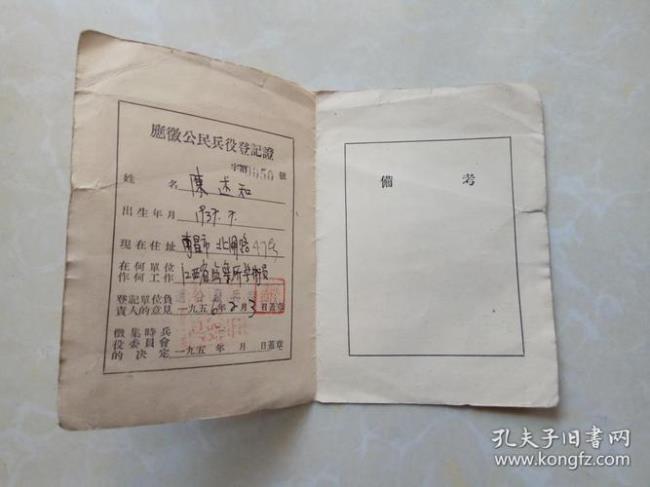 應徵公民兵役登記證
字第0050號
姓 名 陳述知
出生年月
現在住址 南昌市北湖路47号
在何單位
作何工作 江西省
登記單位負
責人的意見 一九五6年2月3日蓋章
徵集時兵
役委員會
的決定 一九五 年 月 日蓋章
備 考
孔夫子旧书网
www.kongfz.com